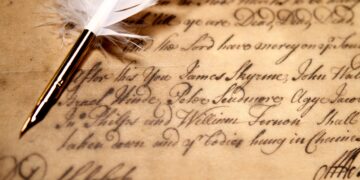 ye are Dead, Dead, Dead
the Lord have mercy on yr Soul
After this You James Skyrme, John
Israel Winde, Peter Scudmore Agge Jaco
Jn Philps and William Fernon Shall
taken down and yr bodies hung in Chains